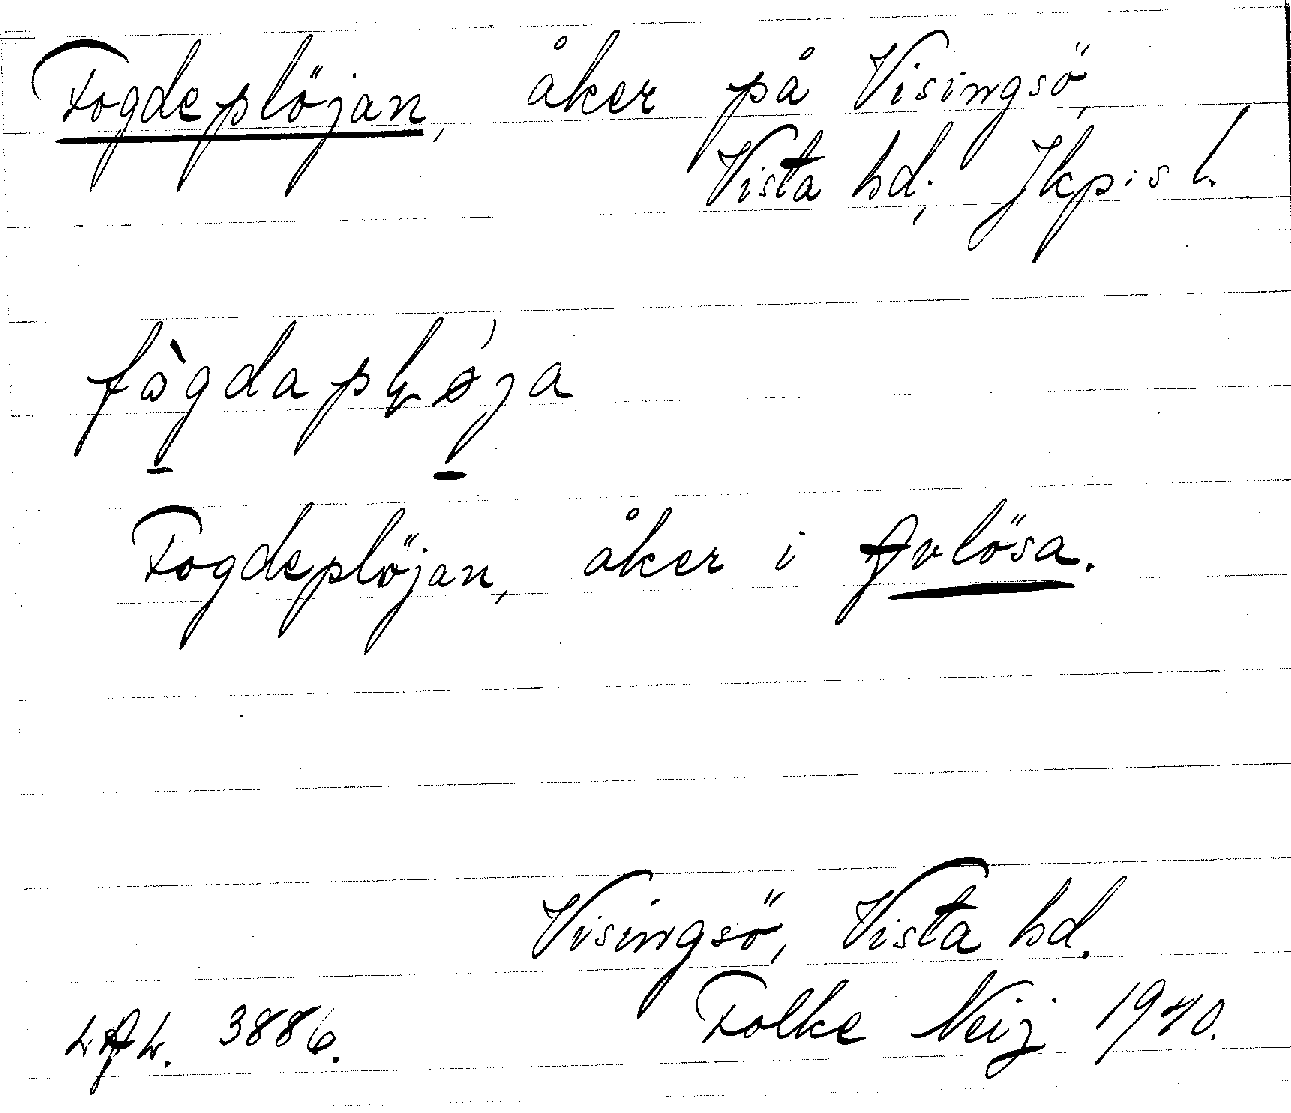 Fogdeplöjan, åker på Visingsö,
Vista hd; Jkp:s l.
Fogdeplöjan, åker i Avlösa.
Visingsö, Vista hd.
L.A.L. 3886. Folke Neij 1940.